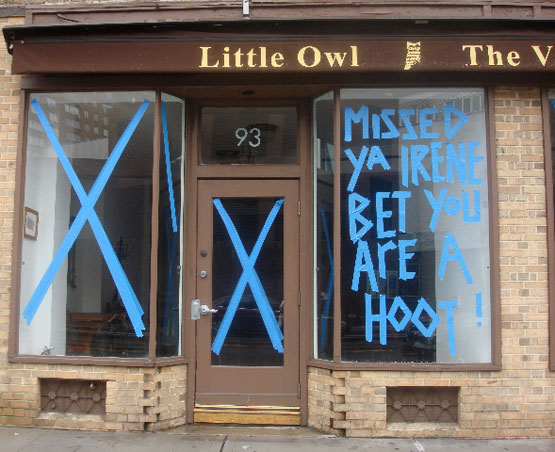 Little Owl The V
93
MISSED
YA IRENE
BET YOU
ARE A
HOOT!